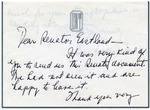 Dear Senator Eastland –
It was very kind of
you to send us this Senate document.
We had not seen it and are
happy to have it.
Thank you very